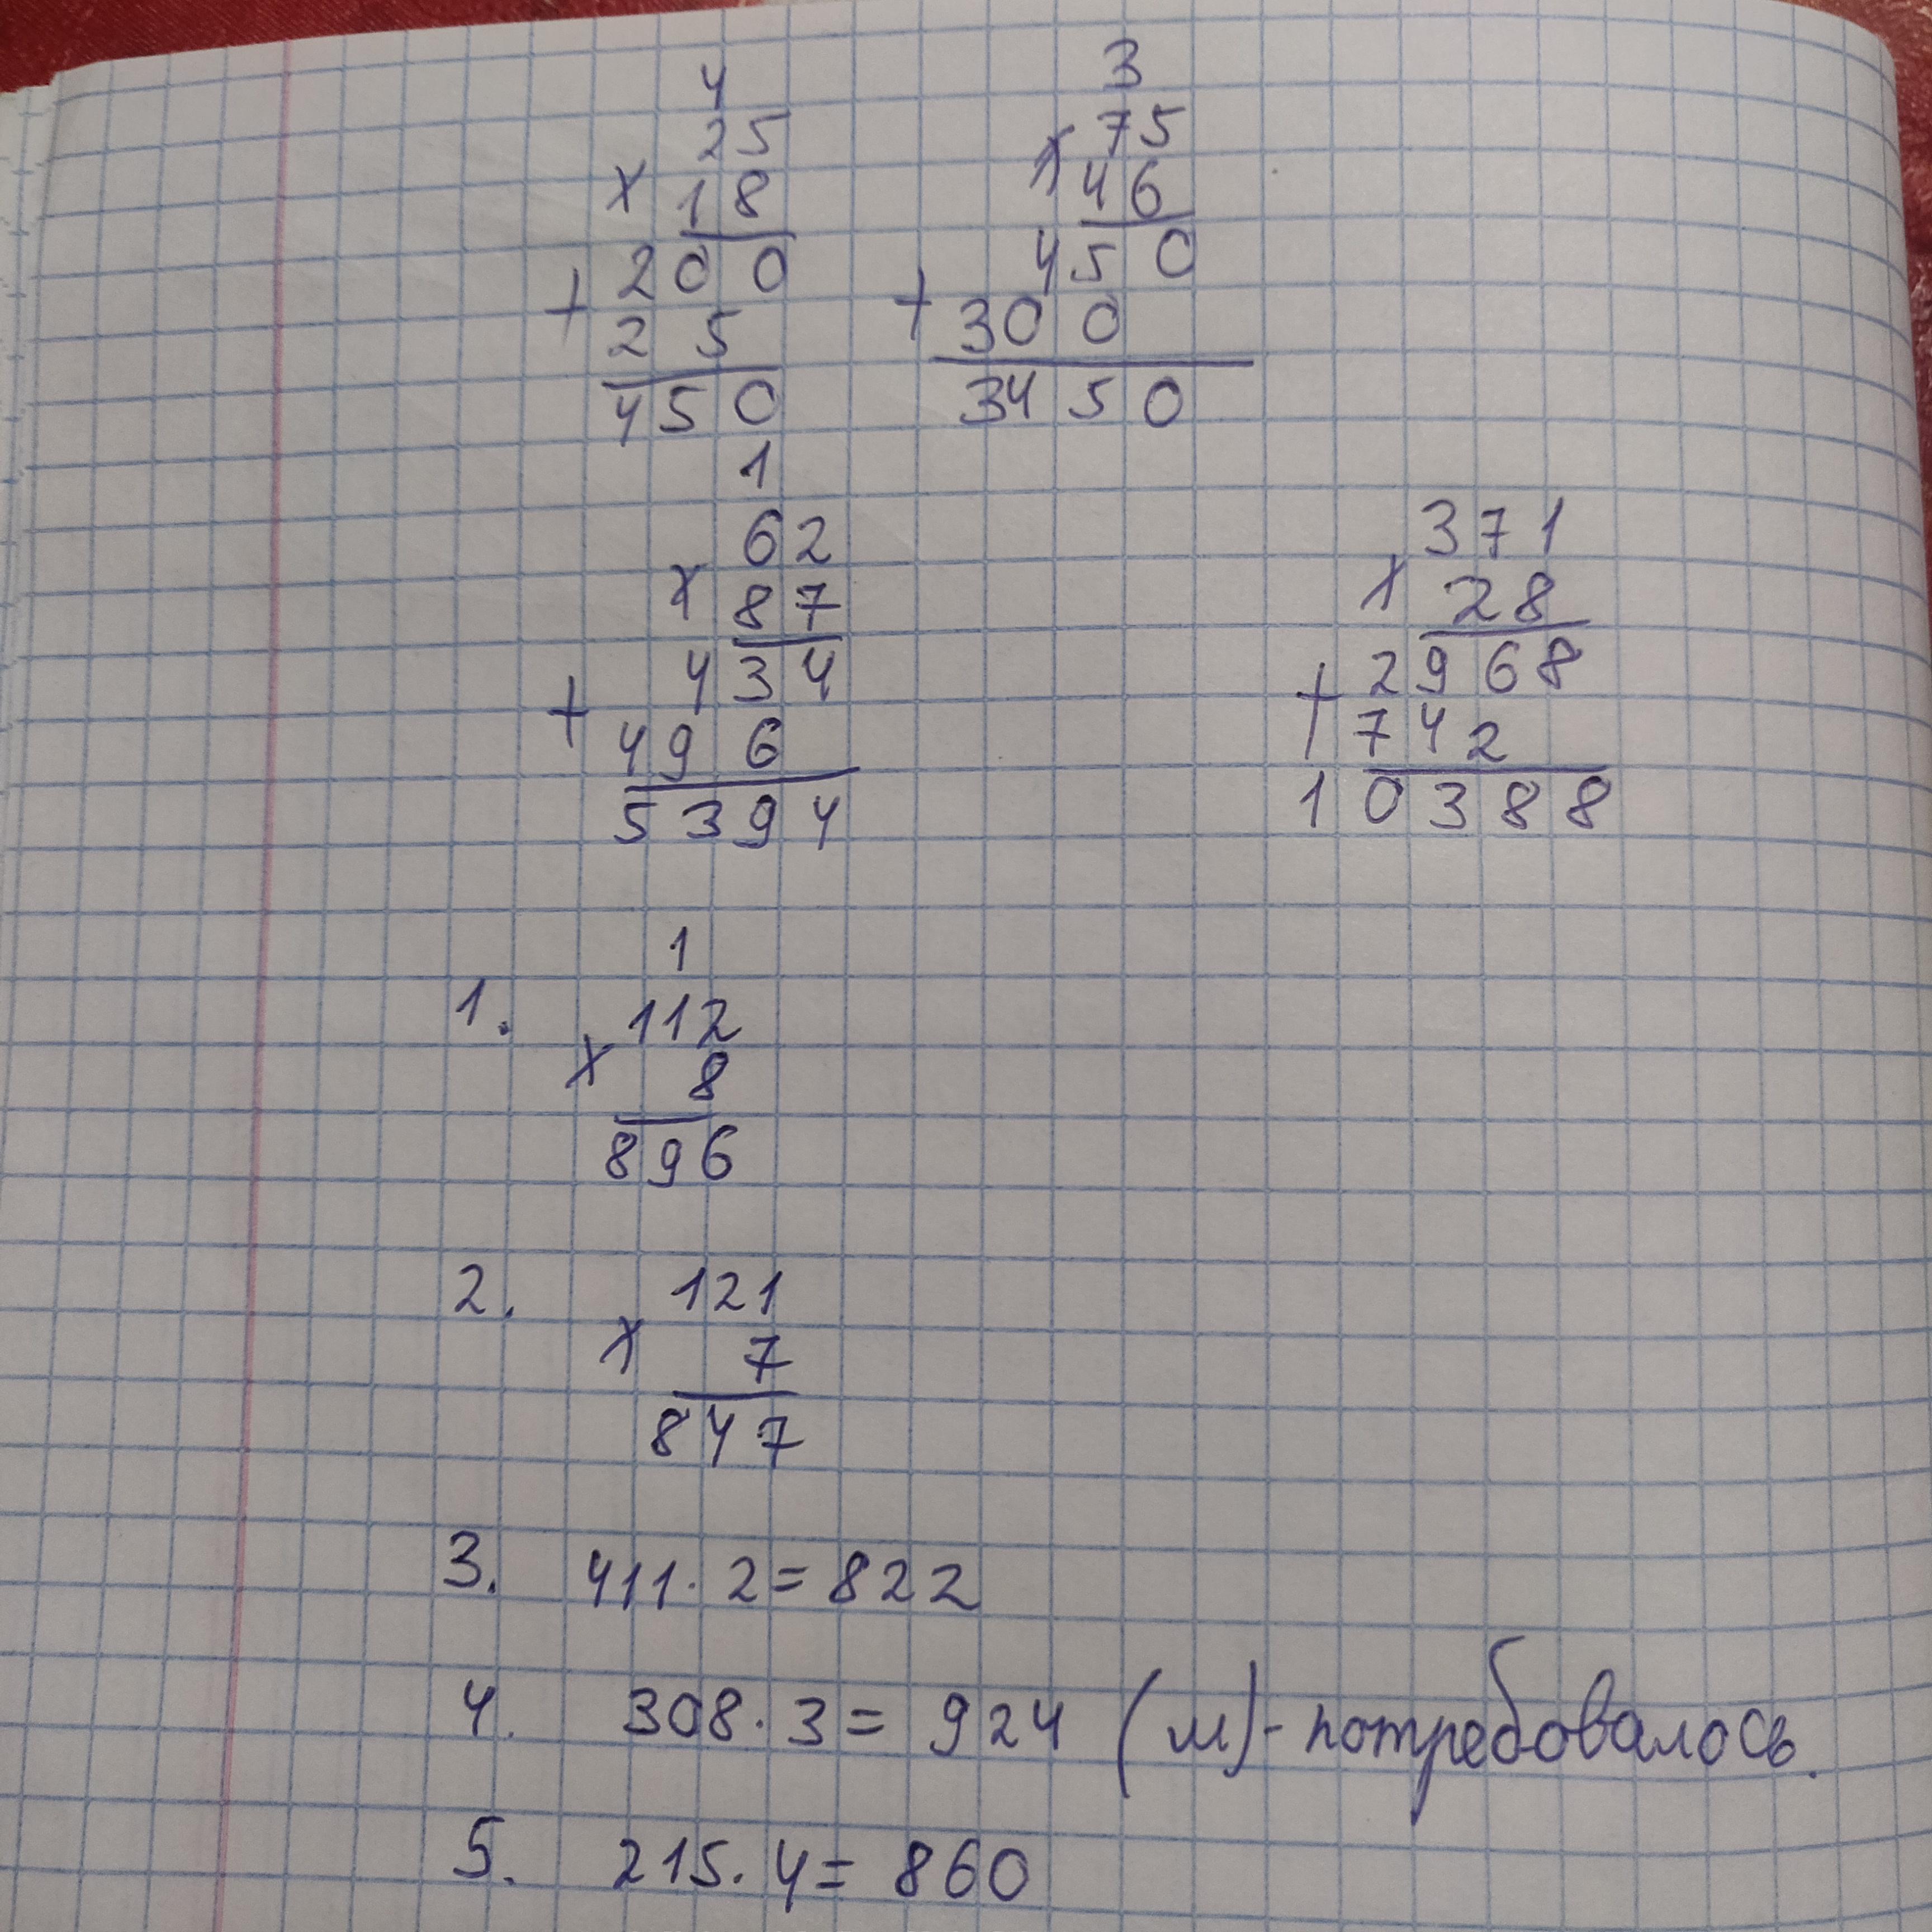 4 3
25 75
х 18 х 46
200 450
+ 25 + 300
450 3450
1
62 371
х 87 х 28
434 2968
+ 496 + 742
5394 10388
1
1. 112
х 8
896
2. 121
х 7
847
3. 411 · 2 = 822
4. 308 · 3 = 924 (м) - потребовалось.
5. 215 · 4 = 860